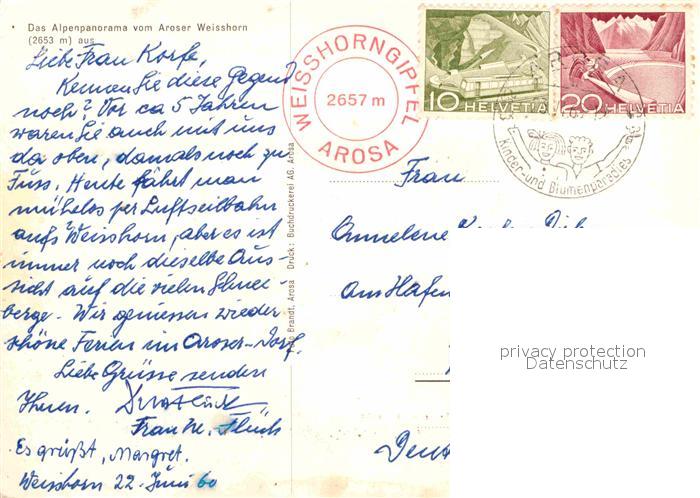 Das Alpenpanorama vom Aroser Weisshorn
(2653 m) aus
Liebe Frau Korfe,
Kennen Sie diese Gegend
noch? Vor ca 5 Jahren
waren Sie auch mit uns
da oben, damals noch zu
Fuss. Heute fährt man
mühelos per Luftseilbahn
aufs Weisshorn, aber es ist
immer noch dieselbe Aus-
sicht auf die vielen Schnee-
berge. Wir geniessen wieder
schöne Ferien im Aroser-Dorf.
Liebe Grüsse senden
Ihnen.
Frau
Es grüsst, Margret.
Weisshorn 22. Juni 60
Brandt, Arosa Druck: Buchdruckerei AG. Arosa
WEISSHORNGIPFEL
2657 m
AROSA
10 HELVETIA
20 HELVETIA
Kinder- und Blumenparadies
Frau
Annelene
Am Hafen
privacy protection
Datenschutz